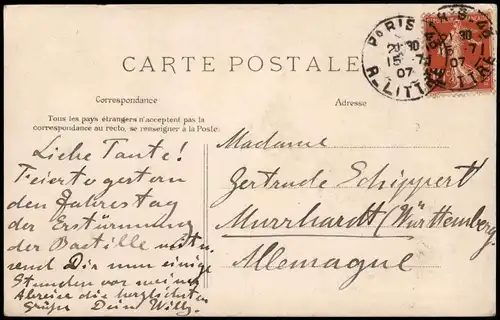 PARIS 43
R. LITTRÉ
20 30
15 - 7
07
CARTE POSTALE
Correspondance
Adresse
Tous les pays étrangers n'acceptent pas la
correspondance au recto, se renseigner à la Poste.
Liebe Tante!
Feierte gestern
den Jahrestag
der Erstürmung
der Bastille mit u.
send Dir nun einige
Stunden vor meiner
Abreise die herzlichsten
Grüße Dein Willy.
Madame
Gertrude Schippert
Murrhardt (Württemberg
Allemagne